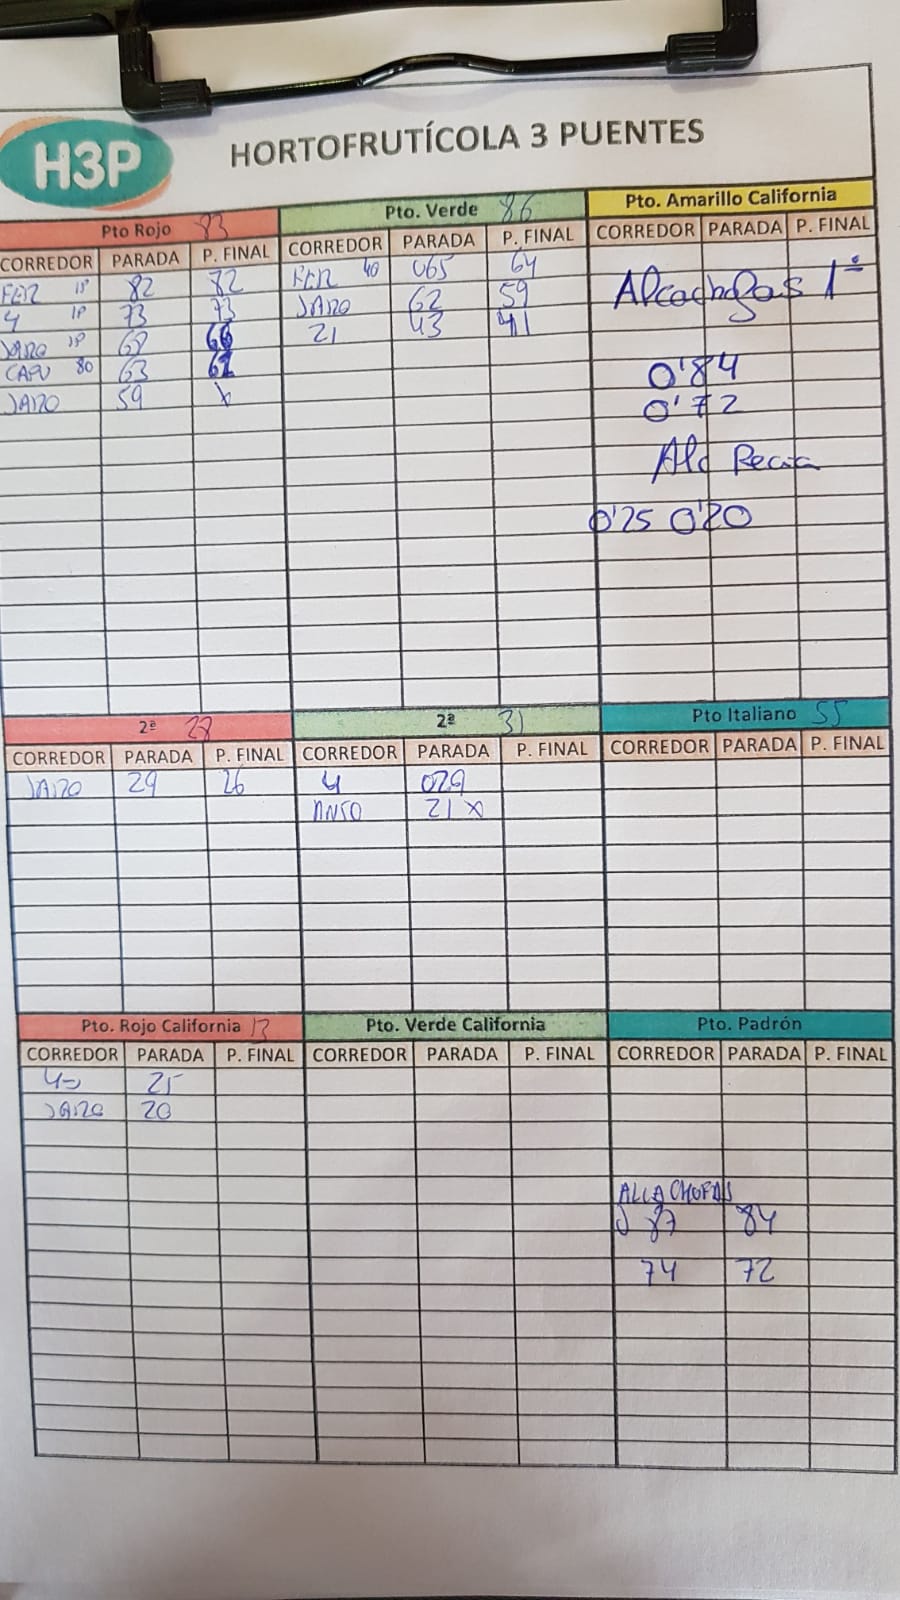 H3P
HORTOFRUTÍCOLA 3 PUENTES
Pto Rojo 83 Pto. Verde 86 Pto. Amarillo California
CORREDOR PARADA P. FINAL CORREDOR PARADA P. FINAL CORREDOR PARADA P. FINAL
FER 1P 82 72 FER 40 065 64
4 1P 73 73 JAIRO 62 59 Alcachofas 1ª
JAIRO 1P 21 43 41
CAPU 80 63 62 0'84
JAIRO 59 x 0'72
Alc
0'25 0'20
2ª 2ª 31 Pto Italiano 55
CORREDOR PARADA P. FINAL CORREDOR PARADA P. FINAL CORREDOR PARADA P. FINAL
JAIRO 29 26 4 029
ANTO 21 x
Pto. Rojo California Pto. Verde California Pto. Padrón
CORREDOR PARADA P. FINAL CORREDOR PARADA P. FINAL CORREDOR PARADA P. FINAL
40 25
JAIRO 20
87 84
74 72